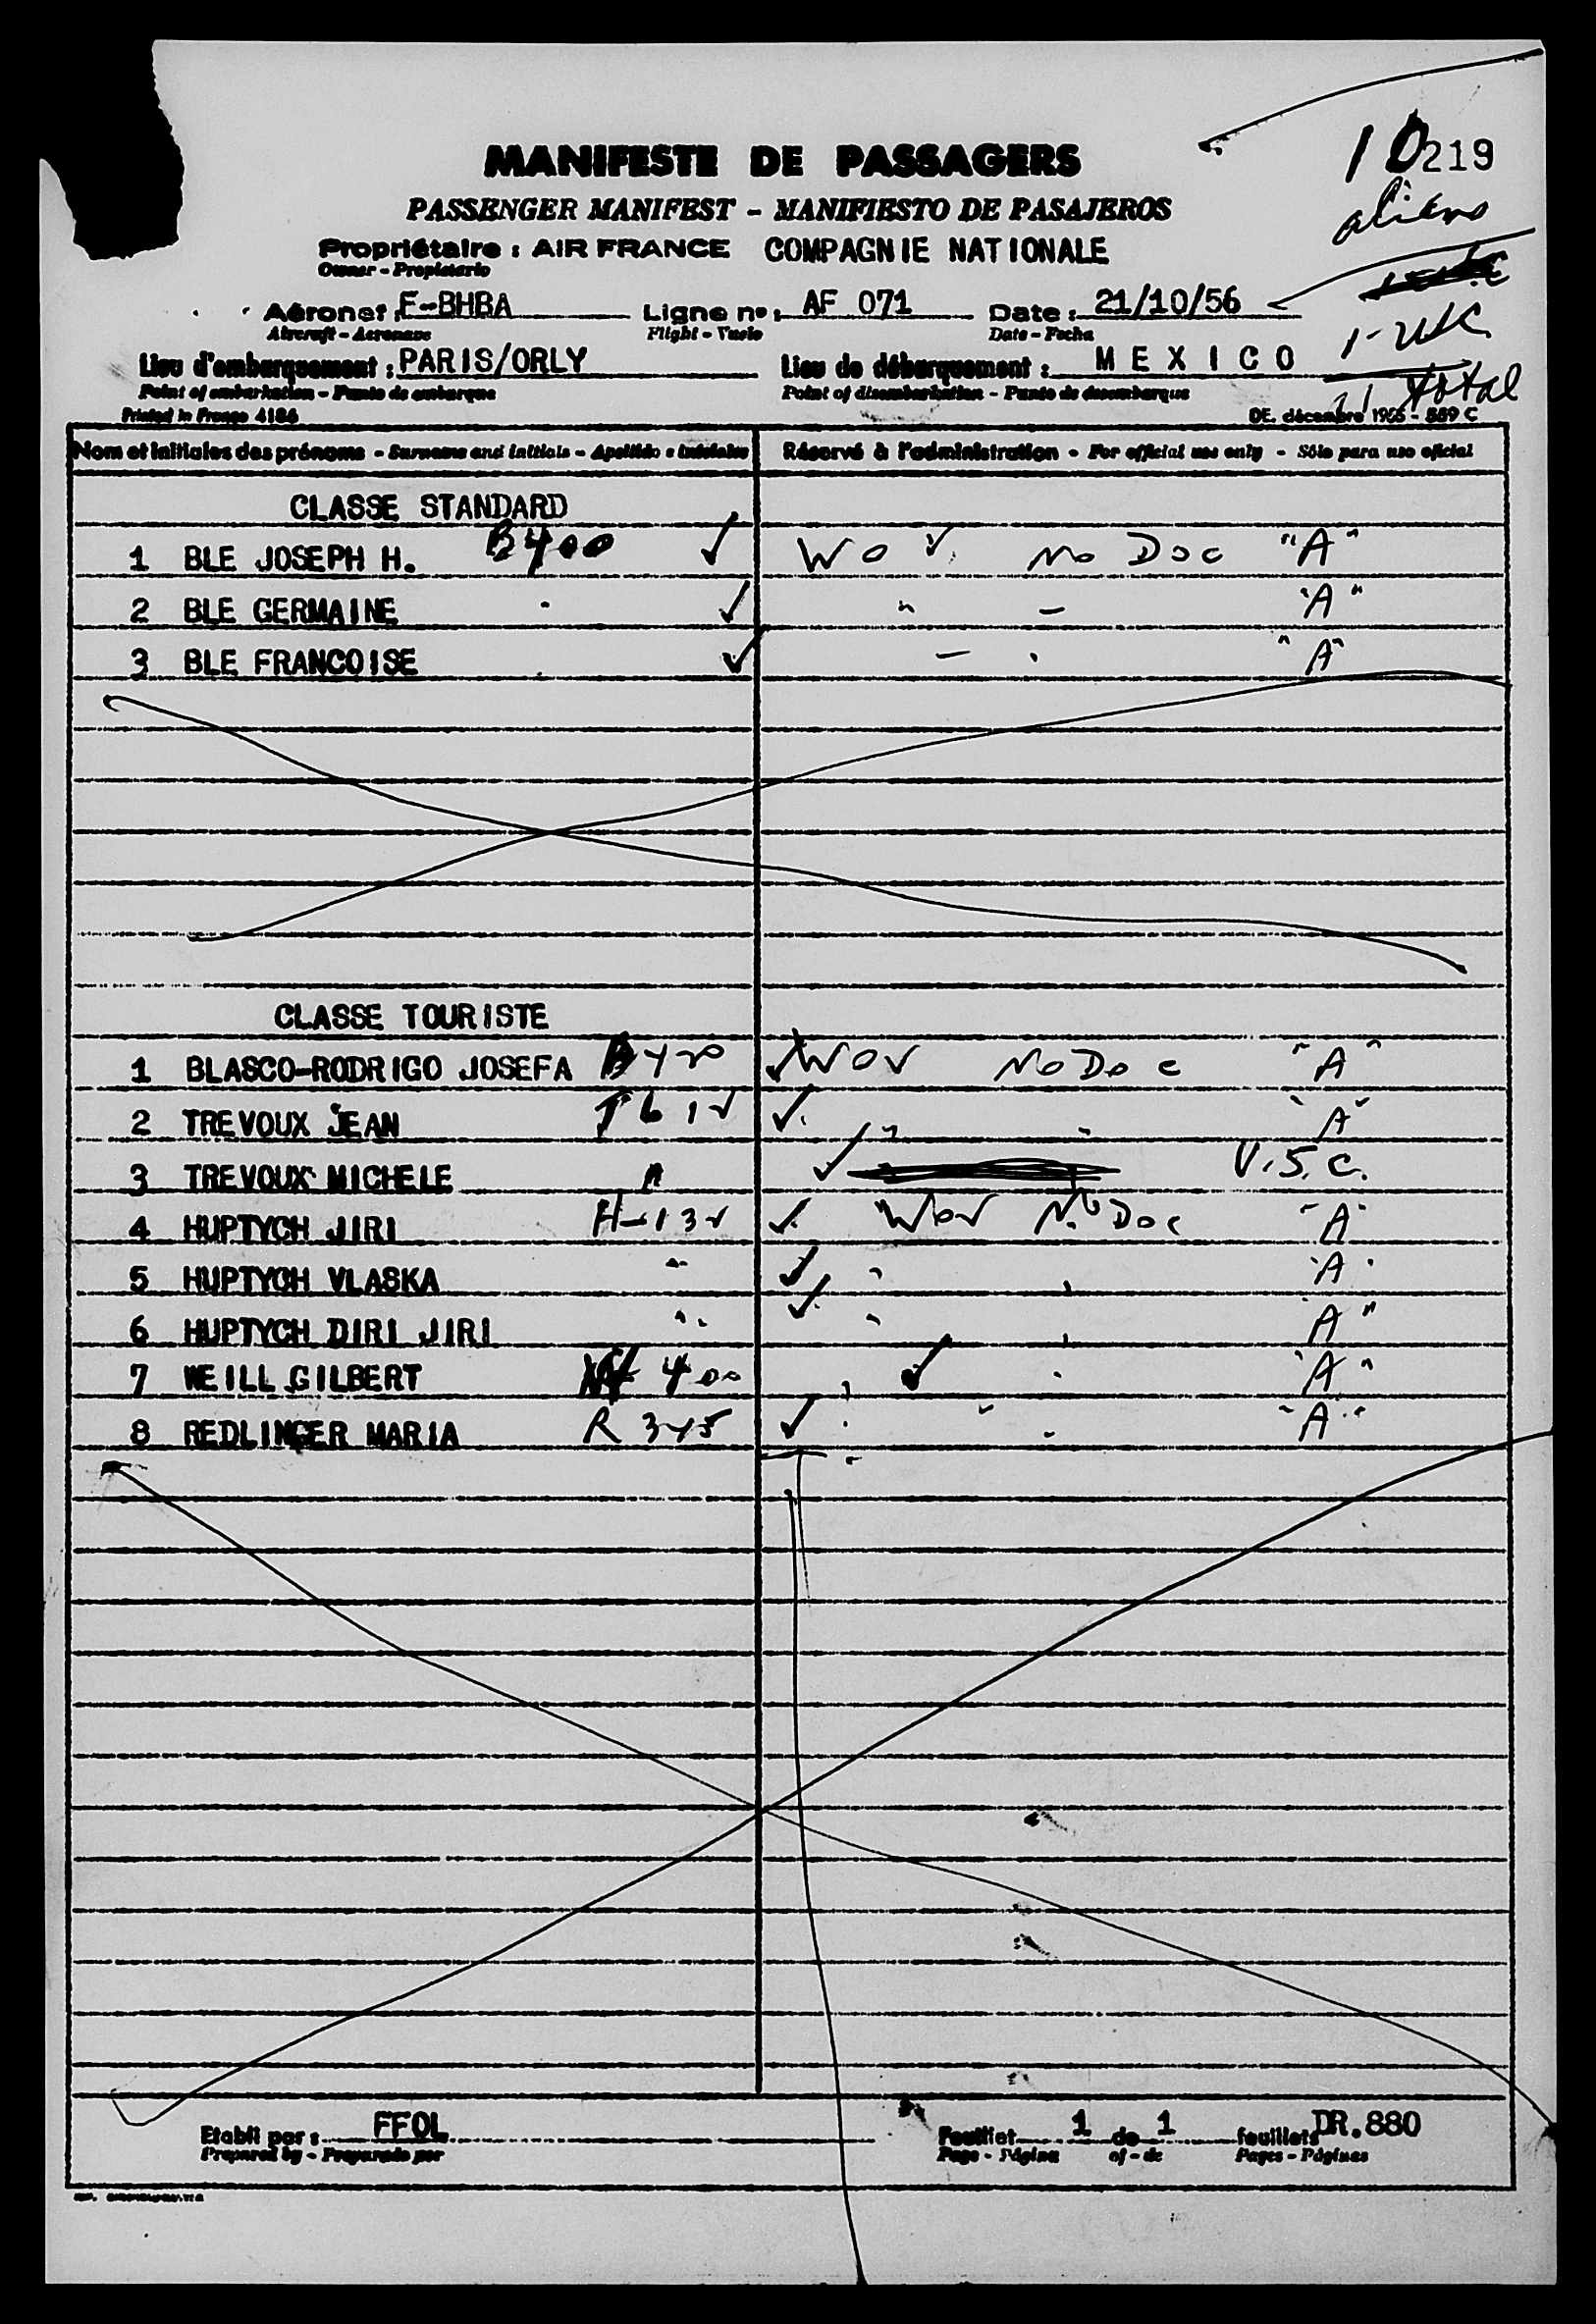 10 219
aliens
MANIFESTE DE PASSAGERS
PASSENGER MANIFEST - MANIFIESTO DE PASAJEROS
Propriétaire : AIR FRANCE COMPAGNIE NATIONALE
Owner - Propietario
Aéronef : F-BHBA Ligne nº : AF 071 Date : 21/10/56
Aircraft - Aeronave Flight - Vuelo Date - Fecha
1-USC
Lieu d'embarquement : PARIS/ORLY Lieu de débarquement : MEXICO
Point of embarkation - Punto de embarque Point of disembarkation - Punto de desembarque
11 total
Printed in France 4186 DE. décembre 1955 - 559 C
Nom et initiales des prénoms - Surname and initials - Apellido e iniciales Réservé à l'administration - For official use only - Sólo para uso oficial
CLASSE STANDARD
1 BLE JOSEPH H. B400 ✓ WOV. No Doc "A"
2 BLE GERMAINE ✓ " - "A"
3 BLE FRANCOISE ✓ - "A"
CLASSE TOURISTE
1 BLASCO-RODRIGO JOSEFA B420 ✓ WOV No Doc "A"
2 TREVOUX JEAN T612 ✓ " "A"
3 TREVOUX MICHELE " ✓ U.S.C.
4 HUPTYCH JIRI H-132 ✓ WOV No Doc "A"
5 HUPTYCH VLASKA " ✓ " "A"
6 HUPTYCH DIRI JIRI " ✓ " "A"
7 WEILL GILBERT W400 ✓ "A"
8 REDLINGER MARIA R345 ✓ "A"
Etabli par : FFOL Feuillet 1 de 1 feuillets DR.880
Prepared by - Preparado por Page - Página of - de Pages - Páginas